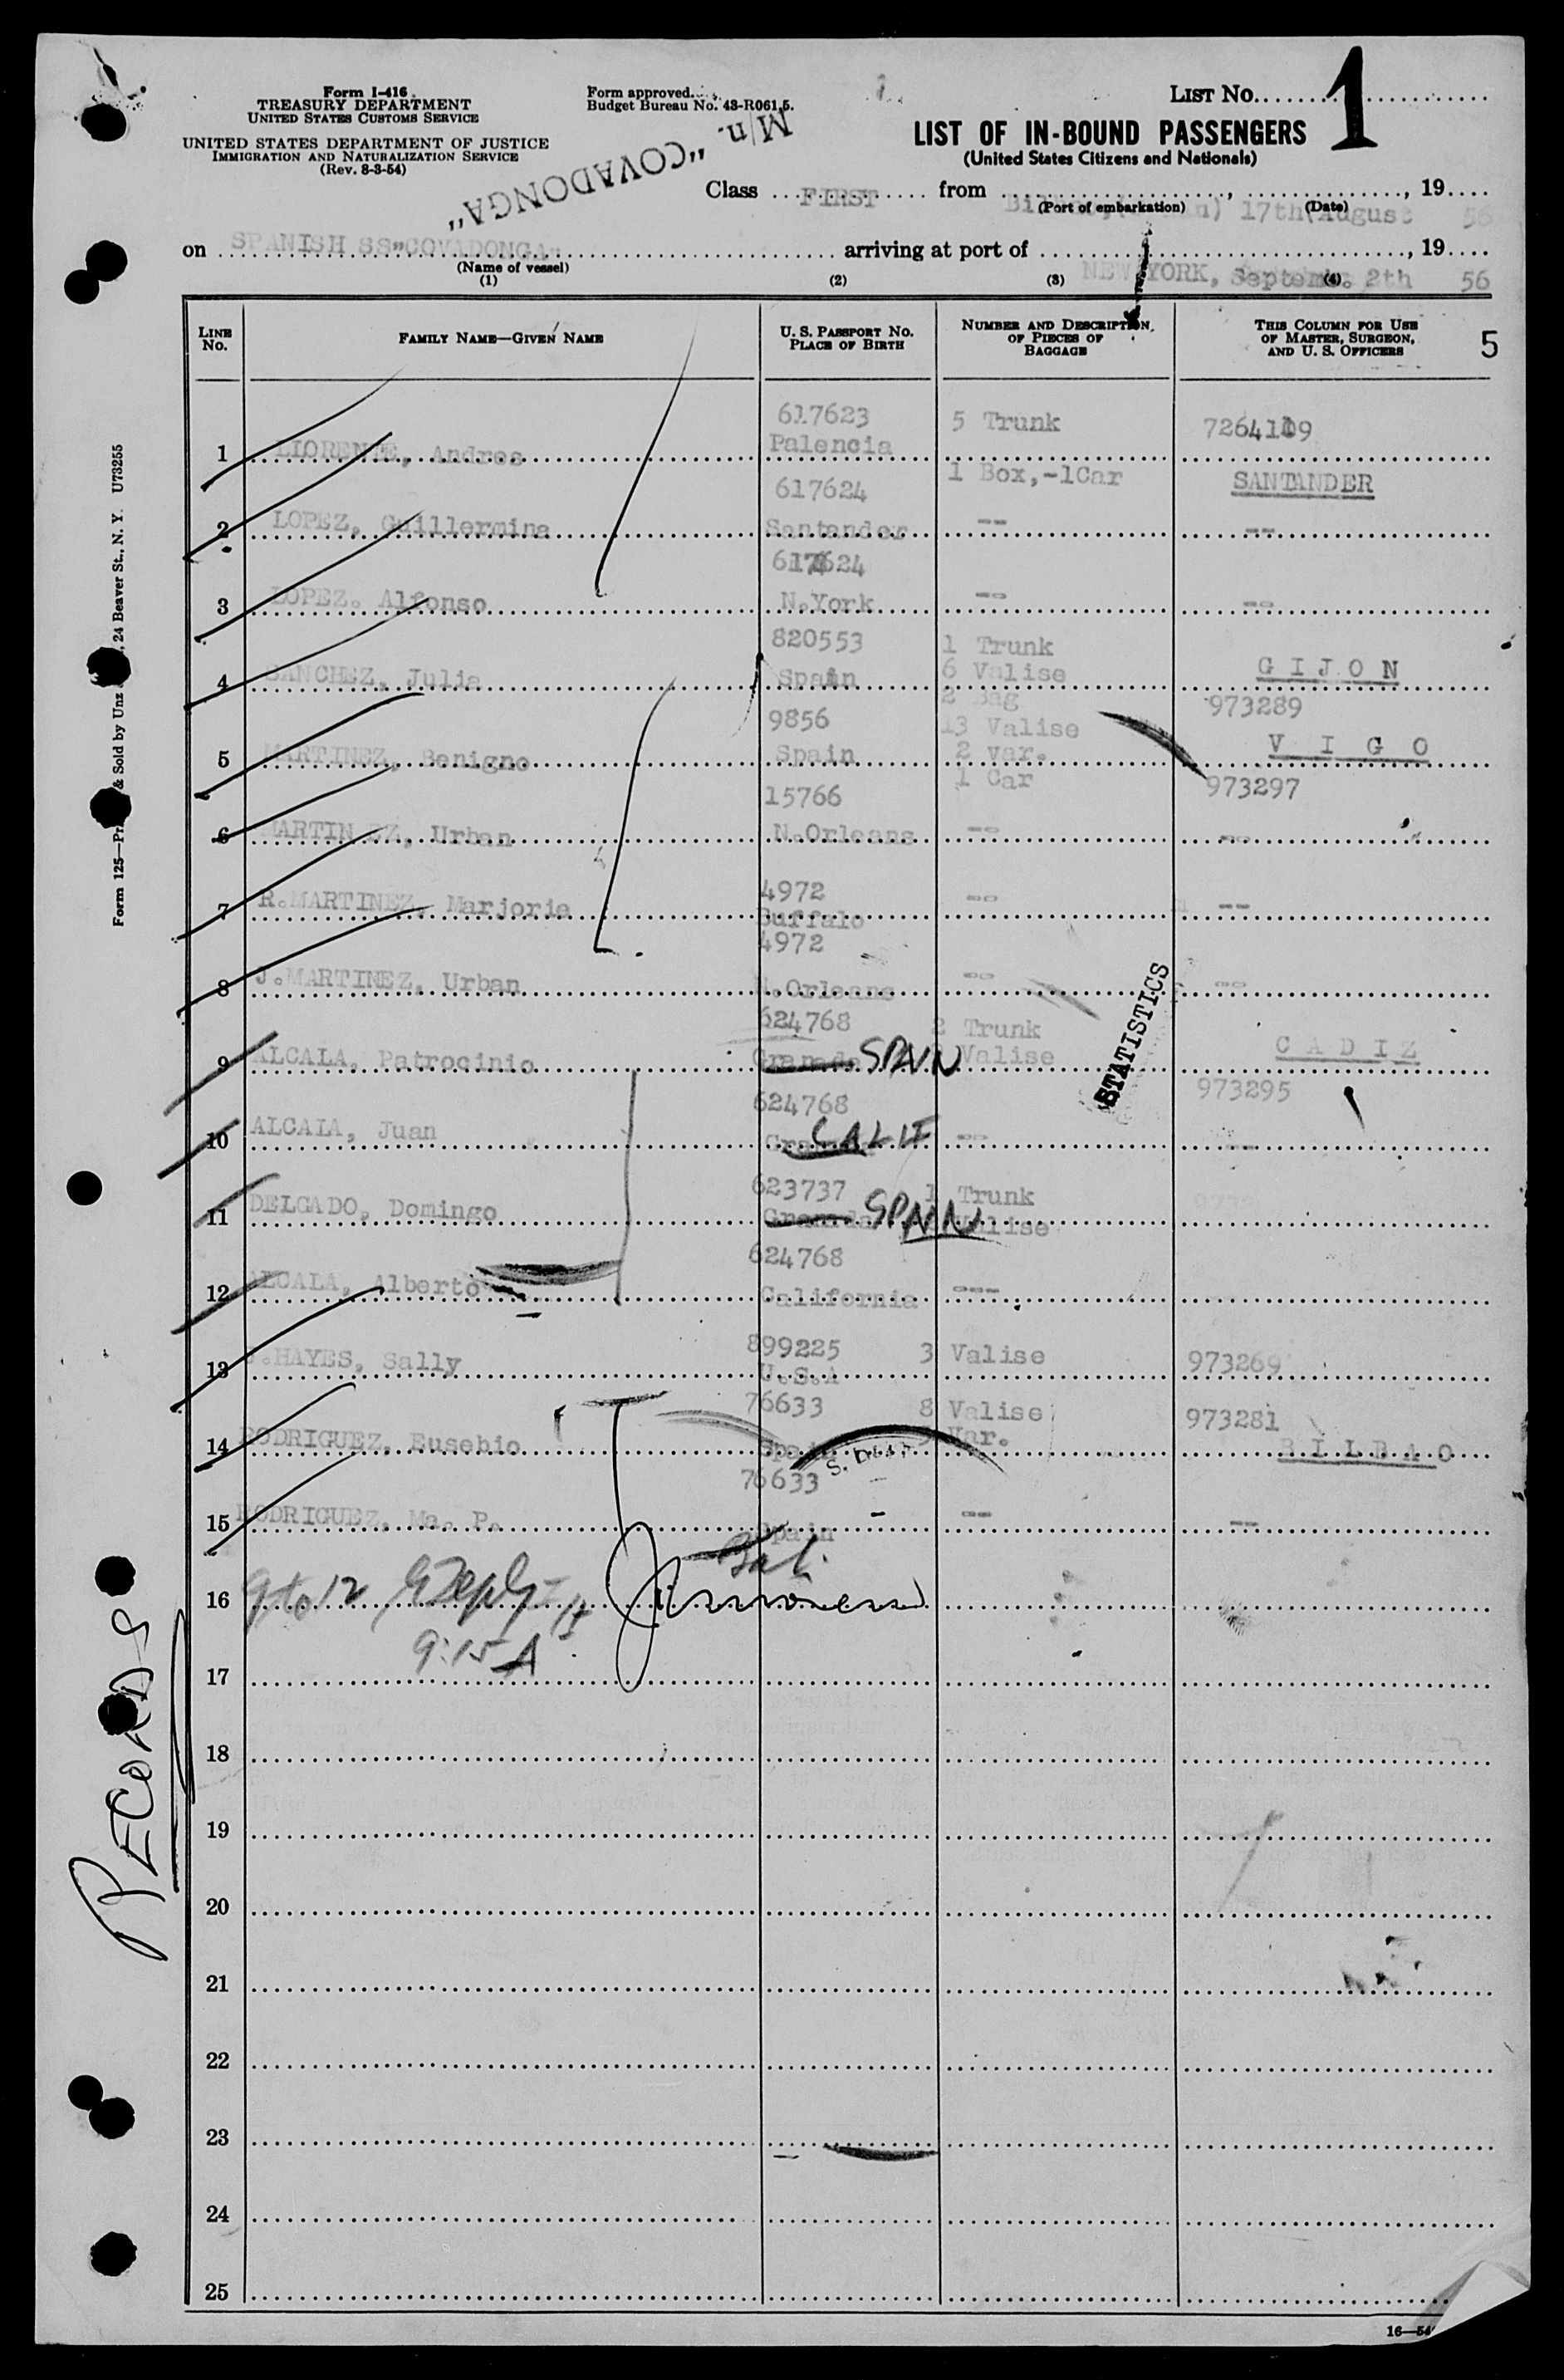 Form I-416
TREASURY DEPARTMENT
UNITED STATES CUSTOMS SERVICE
UNITED STATES DEPARTMENT OF JUSTICE
IMMIGRATION AND NATURALIZATION SERVICE
(Rev. 8-3-54)
Form approved.
Budget Bureau No. 43-R061.5.
M/n. "COVADONGA"
LIST No. 1
LIST OF IN-BOUND PASSENGERS
(United States Citizens and Nationals)
Class FIRST from 17th August, 19 56
(Port of embarkation) (Date)
on SPANISH SS"COVADONGA" arriving at port of NEW YORK, Septemb. 2th, 19 56
(Name of vessel)
(1) (2) (3) (4)
LINE No. FAMILY NAME—GIVEN NAME U. S. PASSPORT No. PLACE OF BIRTH NUMBER AND DESCRIPTION OF PIECES OF BAGGAGE THIS COLUMN FOR USE OF MASTER, SURGEON, AND U. S. OFFICERS 5
617623 5 Trunk
1 LLORENTE, Andres Palencia
617624 1 Box,-1Car SANTANDER
2 LOPEZ, Guillermina Santander -- --
617624
3 LOPEZ. Alfonso N.York -- --
820553 1 Trunk
4 SANCHEZ, Julia Spain 6 Valise G I J O N
2 Bag 973289
9856 13 Valise
5 MARTINEZ, Benigno Spain 2 var. V I G O
15766 1 Car 973297
6 MARTINEZ, Urban N.Orleans -- --
4972
7 R.MARTINEZ, Marjorie Buffalo -- --
4972
8 J.MARTINEZ, Urban N.Orleans -- --
624768 2 Trunk
9 ALCALA, Patrocinio Granada SPAIN Valise C A D I Z
624768 973295
10 ALCALA, Juan CALIF -- --
623737 1 Trunk
11 DELGADO, Domingo Granada SPAIN Valise
624768
12 ALCALA, Alberto California ---
899225
13 HAYES, Sally U.S.A 3 Valise 973269
76633 8 Valise 973281
14 RODRIGUEZ, Eusebio Spain Var. B I L B A O
76633
15 RODRIGUEZ, Ma. P. Spain -- --
16 9 to 12
9:15 A
17
18
19
20
21
22
23
24
25
STATISTICS
RECORDS
Form 125—Pr & Sold by Unz , 24 Beaver St., N. Y. U73255